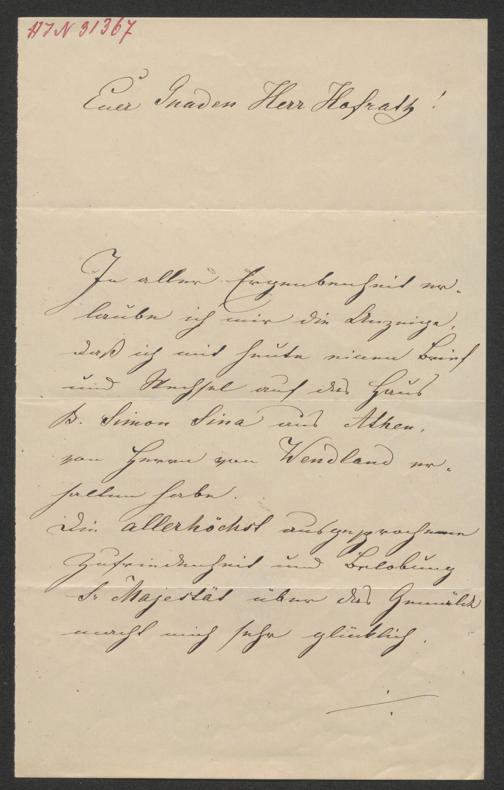 HIN 91367
Euer Gnaden Herr Hofrath!
In aller Ergenbenheit er-
laube ich mir die Anzeige,
daß ich mit heute einen Brief
und Wechsel auf das Haus
B. Simon Sina aus Athen,
von Herrn von Wendland er-
halten habe.
Die allerhöchst ausgesprochene
Zufriedenheit und Belobung
Sr Majestät über das Gemälde
macht mich sehr glücklich.